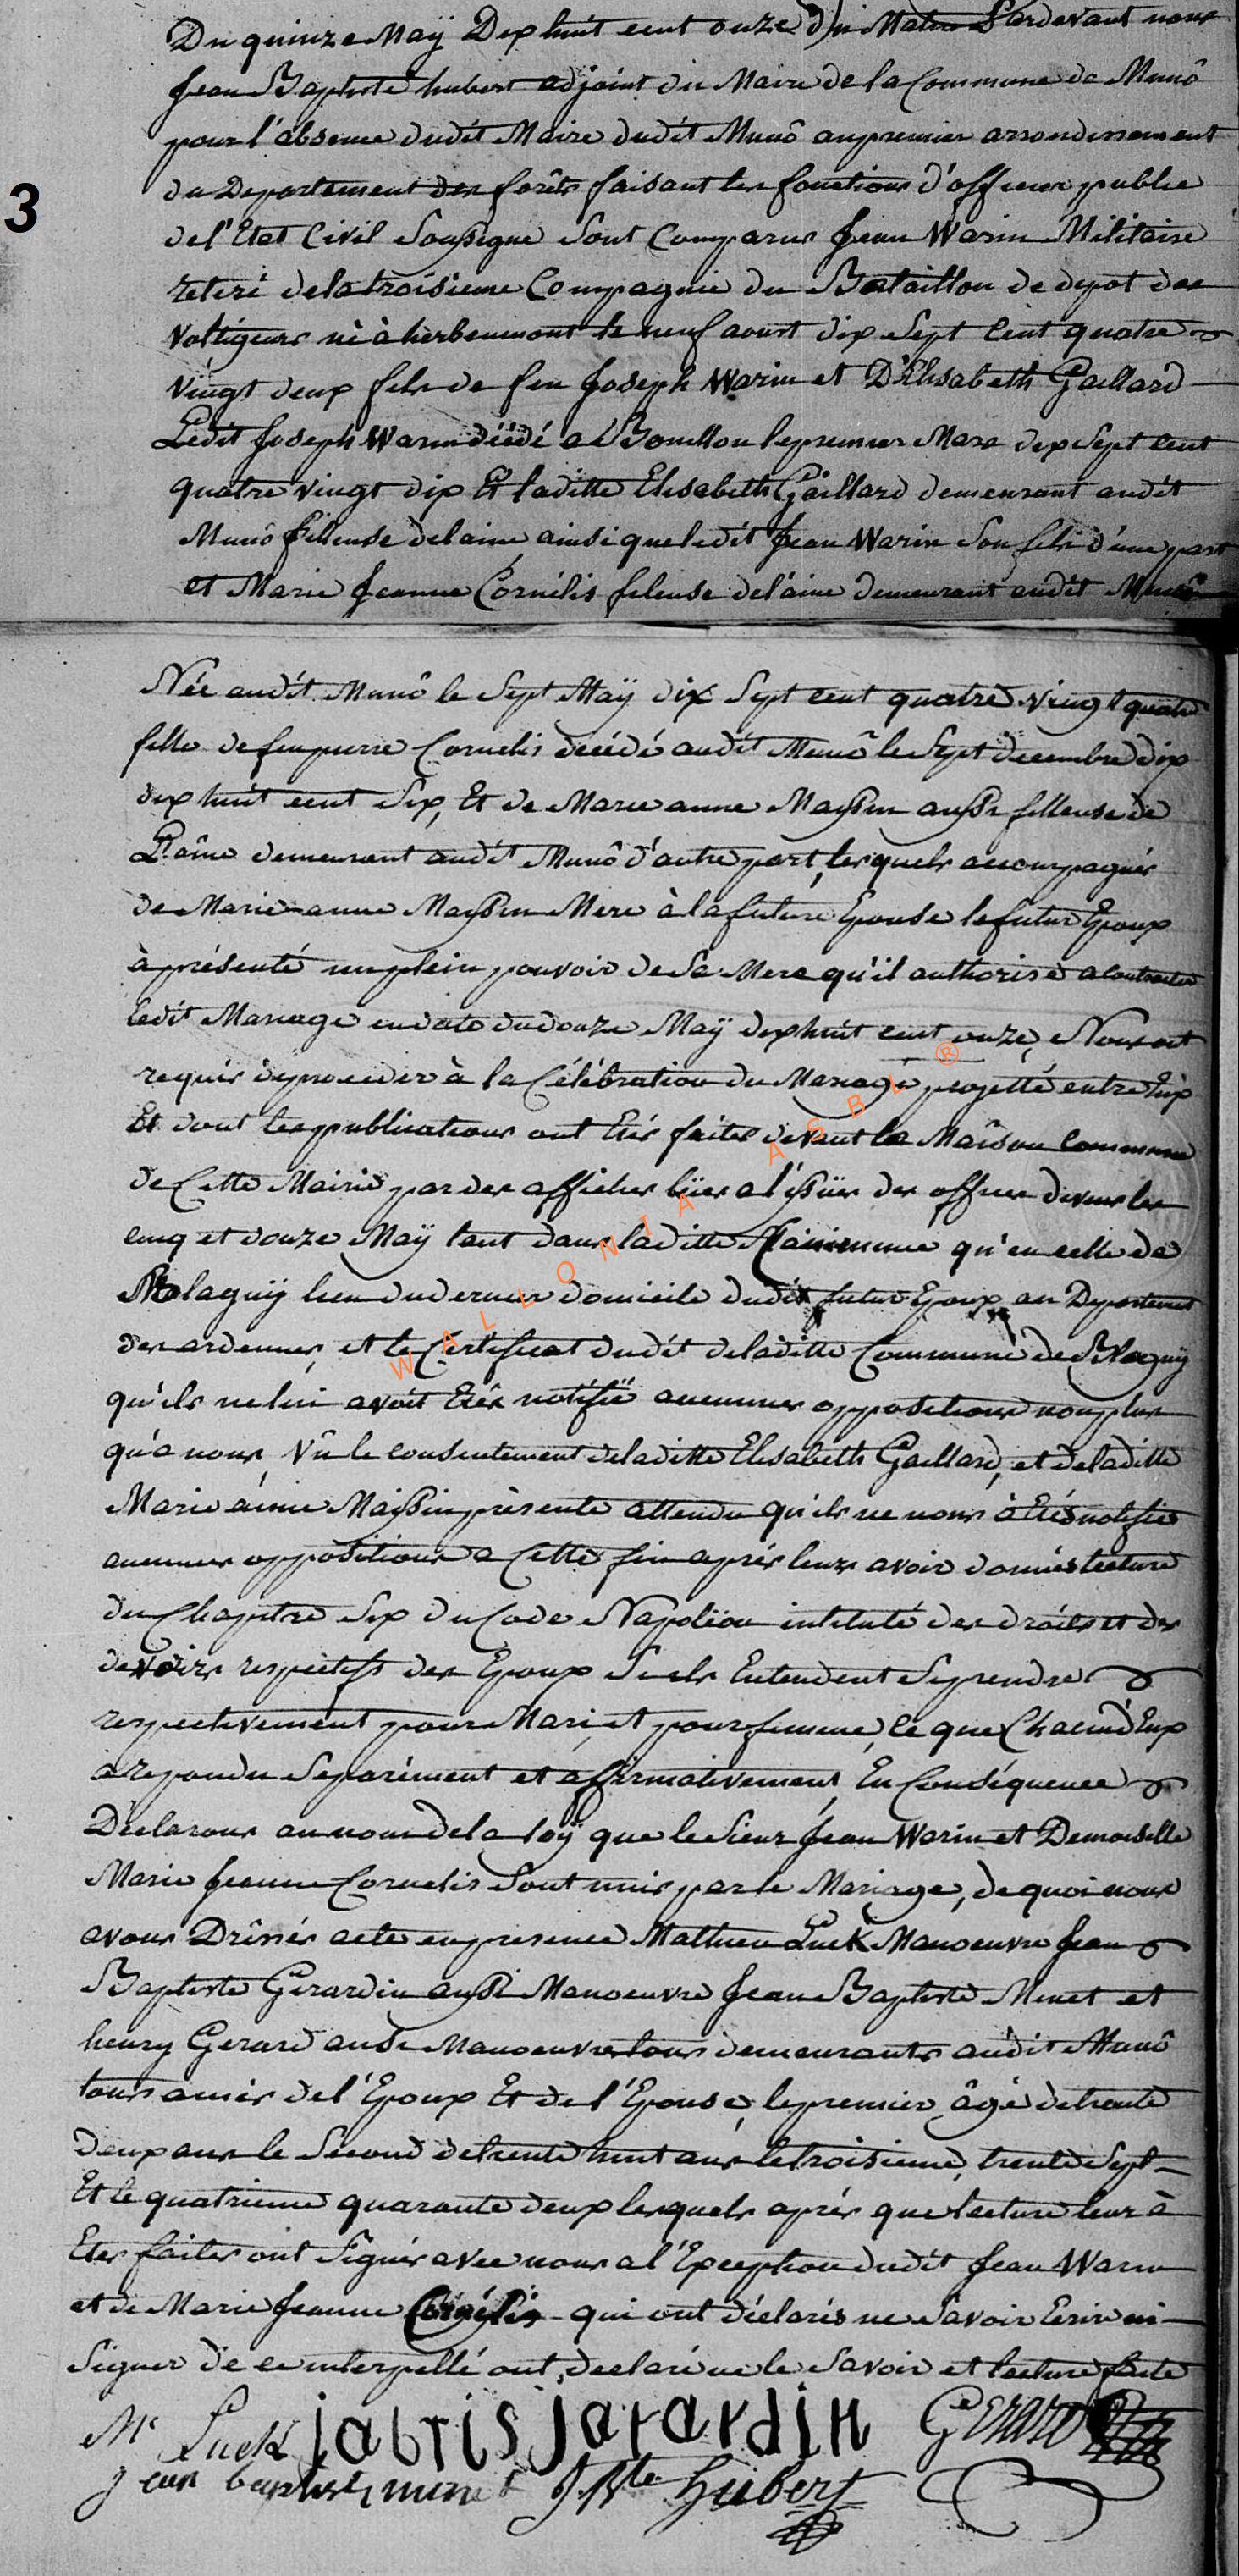 Du quinze Maÿ Dix huit cent onze du Matin Pardevant nous
Jean Baptiste hubert adjoint du Maire de la Commune de Munô
pour l'absence dudit Maire dudit Munô au premier arrondissement
du Departement des forêts faisant les fonctions d'officier public
de l'Etat Civil Soussigné Sont Comparus Jean Warin Militaire
retiré de la troisieme Compagnie du Bataillon de depot des
Voltigeurs né à herbeumont le neuf aoust dix Sept Cent quatre
Vingt deux fils de feu Joseph Warin et D'Elisabeth Gaillard
Ledit Joseph Warin décédé a Bouillon le premier Mars dix Sept cent
quatre vingt dix Et laditte Elisabeth Gaillard demeurant audit
Munô filleuse de laine, ainsi que ledit Jean Warin Son fils d'une part
et Marie Jeanne Cornélis fileuse de laine demeurant audit Munô
3
Née audit Munô le Sept Maÿ dix Sept cent quatre Vingt quatre
fille de feu pierre Cornelis decédé audit Munô le Sept decembre dix
dix huit cent Six, Et de Marie anne Massin aussi filleuse de
Laine demeurant audit Munô d'autre part, lesquels accompagnés
de Marie anne Massin Mere à la future Epouse le futur Epoux
à présenté un plein pouvoir de Sa Mere qu'il authorise a contracter
ledit Mariage en date du douze Maÿ dix huit cent onze, Nous ont
requis de proceder à la Célébration du Mariage projetté entre Eux
Et dont les publications ont Etés faites devant la Maison Commune
de Cette Mairie par des affiches a l'issüe des offices divins les
cinq et douze Maÿ tant dans laditte qu'en celle de
lieu du dernier domicile dudit futur Epoux au Departement
des ardennes, et le Certificat dudit de laditte Commune de
qu'ils ne lui avoit Etés notifié aucunnes oppositions non plus
qu'a nous, Vû le consentement de laditte Elisabeth Gaillard, et de laditte
Marie anne Maissin présente attendu qu'ils ne nous à Etés notifié
aucunnes oppositions a Cette fin après leurs avoir donnés lecture
du Chapitre Six du Code Napoléon intitulé des droits et des
devoirs respectifs des Epoux S'ils Entendent Se prendre
respectivement pour Mari et pour femme, ce que Chacun d'Eux
a repondu Separément et affirmativement, En Conséquence
Déclarons au nom de la loÿ que le Sieur Jean Warin et Demoiselle
Marie Jeanne Cornelis Sont unis par le Mariage, de quoi nous
avons Dressés acte en presence Mathieu Luck Manoeuvre Jean
Baptiste Gerardin aussi Manoeuvre Jean Baptiste Minet et
henry Gerard aussi Manoeuvre tous demeurants audit Munô
tous amis de l'Epoux Et de l'Epouse, le premier âgé de trente
deux ans le Second de trente huit ans le troisieme, trente Sept
Et le quatrieme quarante deux lesquels après que lecture leur à
Etes faites ont Signés avec nous a l'Exception dudit Jean Warin
et de Marie Jeanne Cornélis qui ont déclarés ne Savoir Ecrire ni
Signer de ce interpellé ont declaré ne le Savoir et lecture faite
WALLONIA ASBL ®
Mt Luck jabtis jarardin Gerard
jean baptiste minet J Bte Hubert